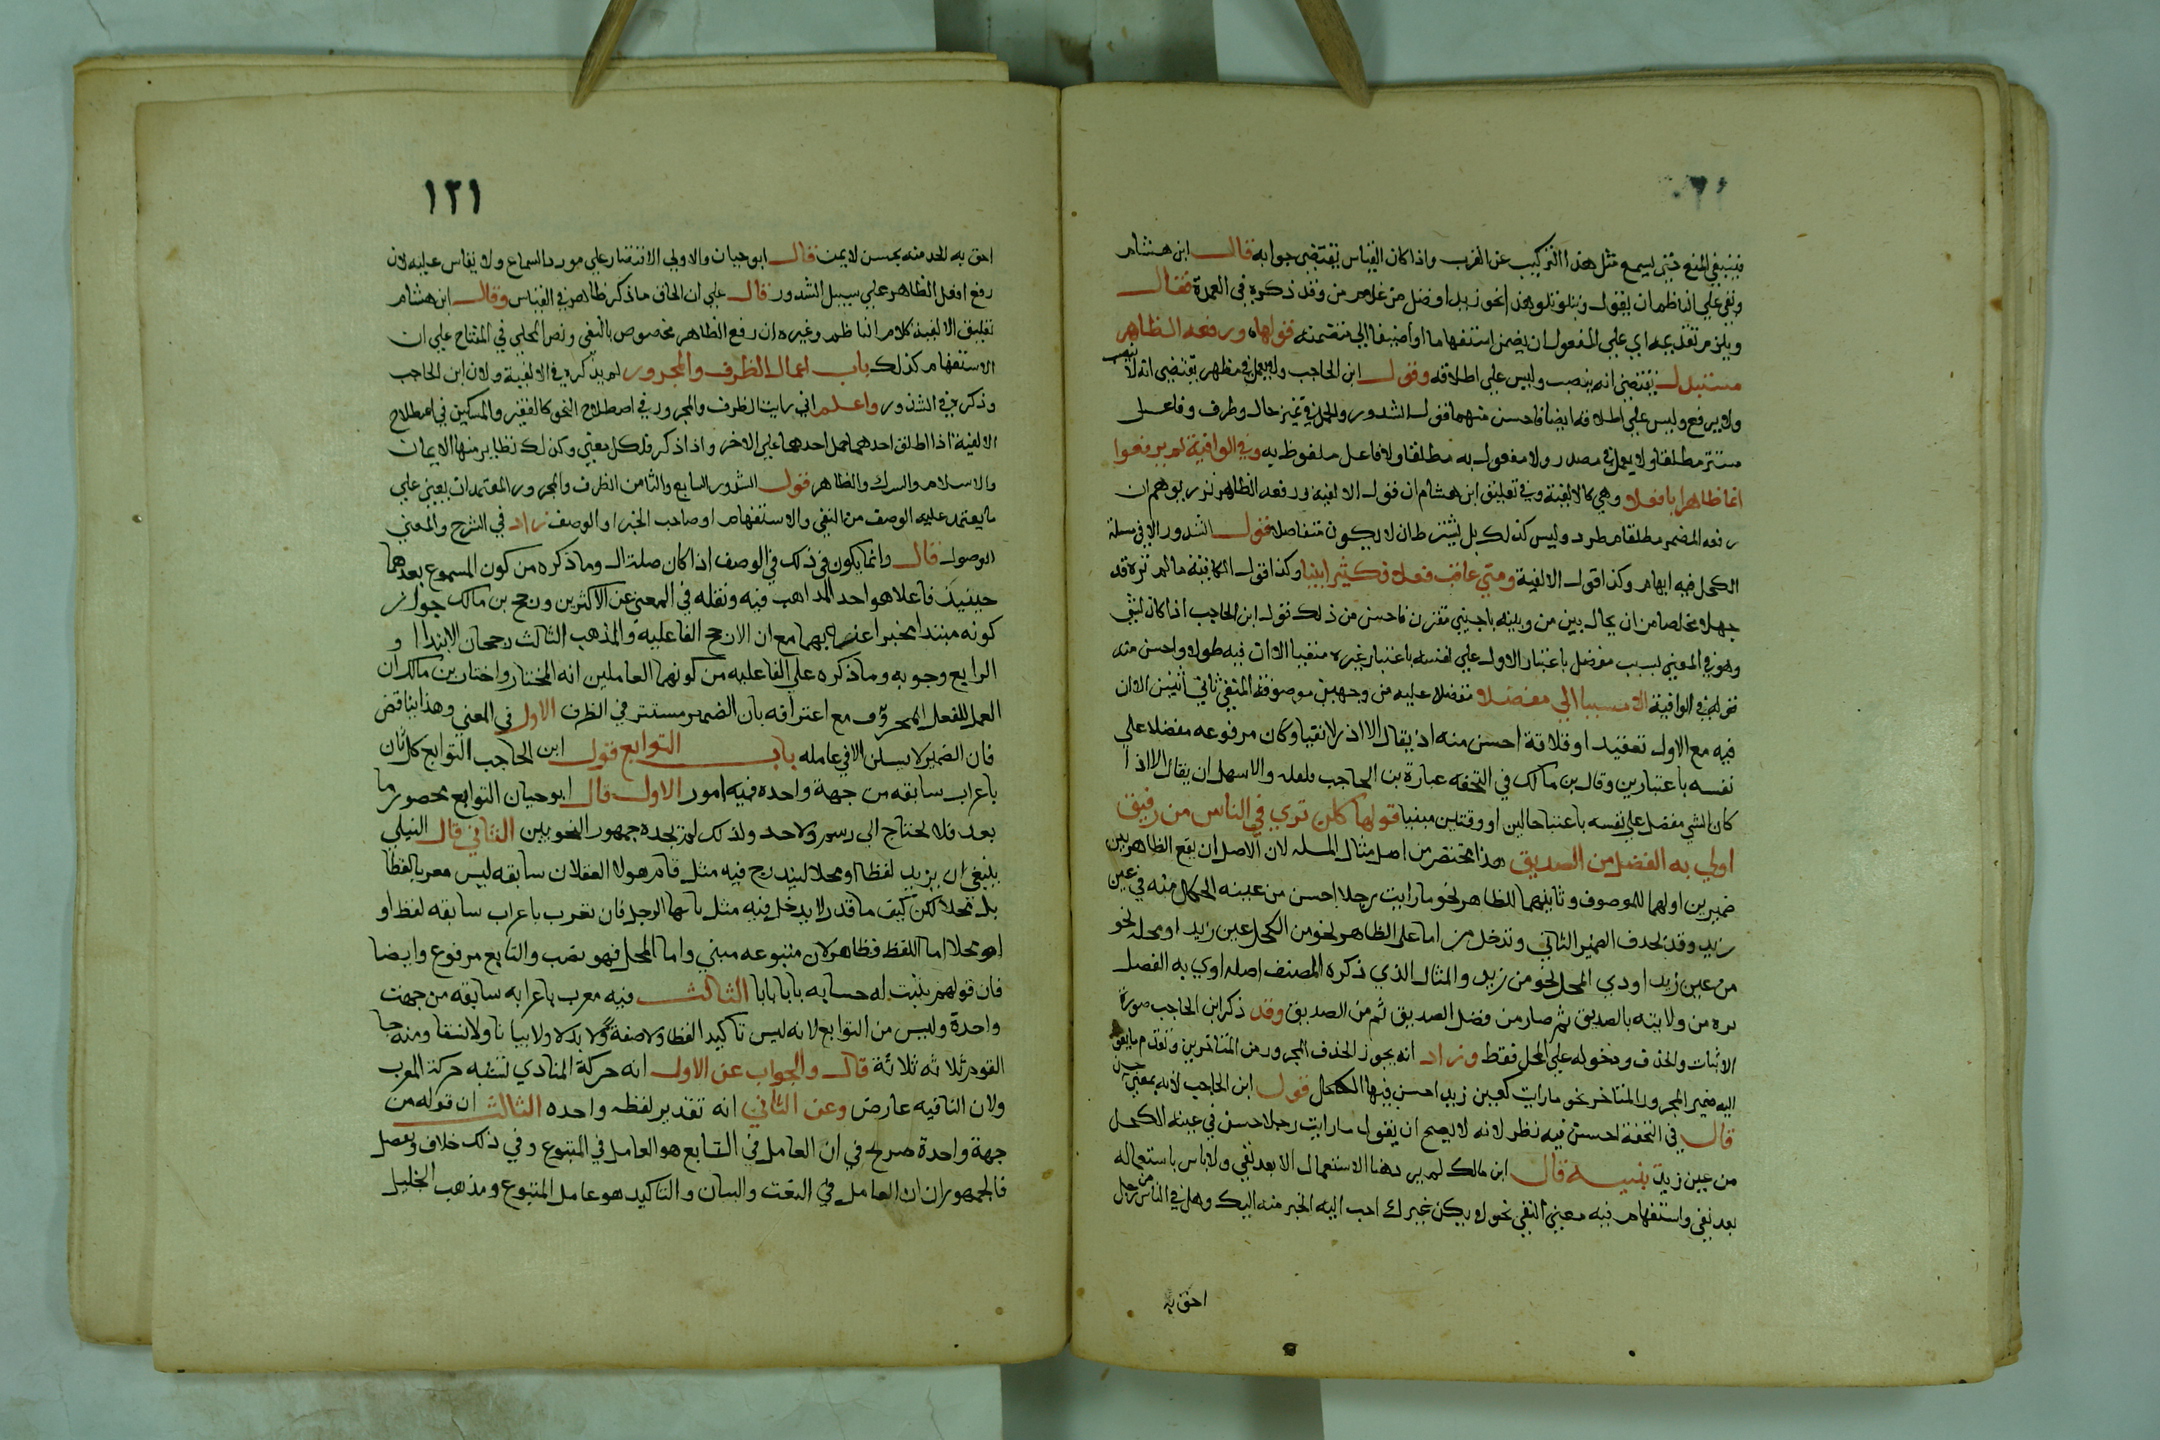 فينبغي المنع حتى يسمع مثل هذا التركيب عن العرب واذا كان القياس يقتضي جوابه قال ابن هشام
وبقي على الناظم ان يقول وبتلو تلوهذا نحو زيد افضل من غلام من وقد ذكره في العمدة فقال
ويلزم تقديمه اي على المفعول ان يضمن استفهاما او اضيف الى متضمنه قولها ورفعه الظاهر
مستبدل يقتضي انه ينصب وليس على اطلاقه وقول ابن الحاجب ولا يعمل في مظهر يقتضي انه لا ينصب
ولا يرفع وليس على اطلاقه ايضا فاحسن منهما قول الشذور ولا يعمل في تمييز حال وظرف وفاعل
مستتر مطلقا ولا يعمل في مصدر ولا مفعول به مطلقا ولا فاعل ملفوظ به وفي الوافية لم يرفعوا
ظاهرا بافعلا وهي كالالفية وفي تعليق ابن هشام ان قول الالفية ورفعه الظاهر نزر يوهم ان
رفعه المضمر مطلقا مطرد وليس كذلك بل يشترط ان لا يكون منفصلا فقول الشذور الا في مسلة
الكحل فيه ابهام وكذا قول الالفية ومتى عاقب فعلا فكثيرا ثبتا وكذا قول الكافية
ان يحال بين من وبينه باجنبي فاحسن من ذلك قول ابن الحاجب اذا كان لشي
وهو في المعنى لسبب مفضل باعتبار الاول على نفسه باعتبار غيره منفيا الا ان فيه طولا واحسن منه
قوله في الوافية مفضلا عليه من وجهين
فيه مع الاول تعقيد او قلاقة احسن منه ان يقال الا اذا رفع نفيا وكان مرفوعه مفضلا على
نفسه باعتبارين وقال بن مالك في التحفة عبارة بن الحاجب والاسهل ان يقال الا اذا
كان الشي مفضل على نفسه باعتبار حالين او وقتين منفيا قولها كلن ترى في الناس من رفيق
اولى به الفضل من الصديق هذا مختصر من اصل مثال المسلة لان الاصل ان يقع الظاهر بين
ضميرين اولهما للموصوف وثانيهما للظاهر نحو ما رايت رجلا احسن من عينه الكحل منه في عين
زيد وقد يحذف الضمير الثاني وتدخل من اما على الظاهر نحو من الكحل عين زيد او محله نحو
من عين زيد او ذي المحل نحو من زيد والمثال الذي ذكره المصنف اصله اولى به الفضل
من ولايته بالصديق ثم صار من فضل الصديق ثم من الصديق وقد ذكر ابن الحاجب صورة
الاثبات والحذف ودخوله على المحل فقط وزاد انه يجوز الحذف المجرور من المتاخرين وتقدم
اليه ضمير المجرور المتاخر نحو ما رايت كعين زيد احسن فيها الكحل قول ابن الحاجب لانه بمعنى حسن
قال في التحفة احسن فيه نظر لانه لا يصح ان يقول ما رايت رجلا حسن في عينه الكحل
من عين زيد تنبيه قال ابن مالك لم يرد هذا الاستعمال الا بعد نفي ولا باس باستعماله
بعد نفي واستفهام فيه معنى النفي نحو لا يكن غيرك احب اليه الخير منه اليك وهل في الناس من رجل
احق به
١٢١
احق به الحمد منه بمحسن لا يمن قال ابو حيان والاولى الاقتصار على مورد السماع ولا يقاس عليه لان
رفع افعل الظاهر على سبيل الشذور قال على ان الحاق ما ذكر ظاهر في القياس وقال ابن هشام
تعليق الالفية كلام الناظم وغيره ان رفع الظاهر مخصوص بالنفي ونص المحلي في المفتاح على ان
الاستفهام كذلك باب اعمال الظرف والمجرور لم يذكره في الالفية ولا ابن الحاجب
وذكر في الشذور واعلم اني رايت الظرف والمجرور في اصطلاح النحو كالفقير والمسكين في اصطلاح
اذا اطلق احدهما حمل احدهما على الاخر واذا ذكر فلكل معنى وكذلك نظاير منها الايمان
والاسلام والشرك والظاهر قول الشذور السابع والثامن الظرف والمجرور المعتمدان يعني على
ما يعتمد عليه الوصف من النفي والاستفهام او صاحب الخبر او الوصف زاد في الشرح والمعنى
الموصول قال وانما يكون في ذلك في الوصف اذا كان صلة ال وما ذكره من كون المسموع بعدهما
حينيذ فاعلا هو احد المذاهب فيه ونقله في المعني عن الاكثرين ورجح بن مالك جواز
كونه مبتدا مخبرا عنه بهما مع ان الارجح الفاعلية والمذهب الثالث رجحان الابتدا و
الرابع وجوبه وما ذكره على الفاعليه من كونهما العاملين انه المختار واختار بن مالك ان
العمل للفعل المحذوف مع اعترافه بان الضمير مستتر في الظرف الاول في المعنى وهذا يناقض
فان الضمير لا يستتر الا في عامله باب التوابع قول ابن الحاجب التوابع كل ثان
باعراب سابقه من جهة واحده فيه امور الاول قال ابو حيان التوابع محصور بما
بعد فلا يحتاج الى رسم ولا حد ولذلك لم يحده جمهور النحويين الثاني قال النيلي
ينبغي ان يزيد لفظا او محلا ليندرج فيه مثل قام هولا العقلا ن سابقه ليس معربا لفظا
بل محلا لكن كيف ما قدر لا يدخل فيه مثل يا ايها الرجل فان تعرب باعراب سابقه لفظا او
او محلا اما اللفظ فظاهر لان متبوعه مبني واما المحل فهو نصب والتابع مرفوع وايضا
فان قولهم بينت له حسابه بابا بابا الثالث فيه معرب باعرابه سابقه من جهت
واحدة وليس من التوابع لانه ليس تاكيد الفظا ولا صفة ولا بدلا ولا بيانا ولا نسقا ومنه جا
القوم ثلاثه ثلاثة قال والجواب عن الاول انه حركة المنادى تشبه حركة المعرب
ولان النافيه عارض وعن الثاني انه تقدير لفظه واحده الثالث ان قوله من
جهة واحدة صريح في ان العامل في التابع هو العامل في المتبوع وفي ذلك خلاف وفصل
فالجمهور ان العامل في النعت والبيان والتاكيد هو عامل المتبوع ومذهب الخليل